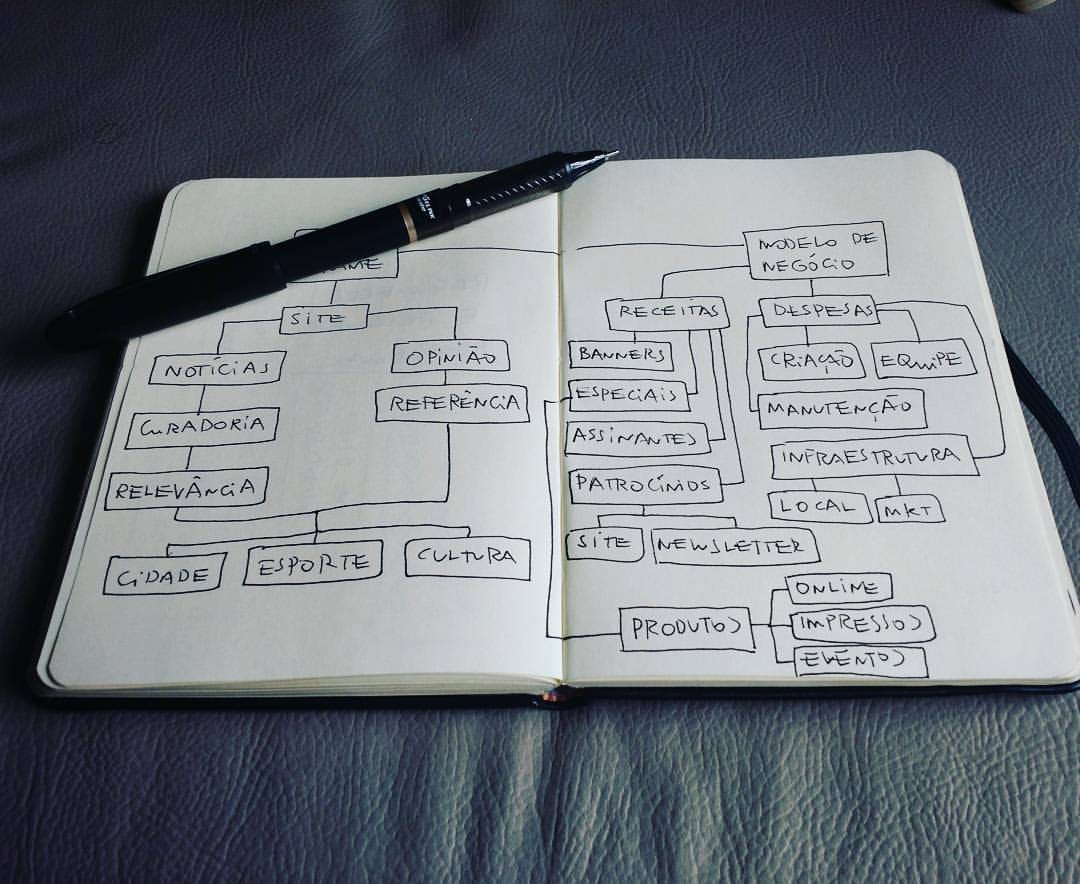 SITE
NOTÍCIAS
CURADORIA
RELEVÂNCIA
OPINIÃO
REFERÊNCIA
CIDADE
ESPORTE
CULTURA
MODELO DE
NEGÓCIO
RECEITAS
BANNERS
ESPECIAIS
ASSINANTES
PATROCÍNIOS
SITE
NEWSLETTER
DESPESAS
CRIAÇÃO
EQUIPE
MANUTENÇÃO
INFRAESTRUTURA
LOCAL
MKT
PRODUTOS
ONLINE
IMPRESSOS
EVENTOS